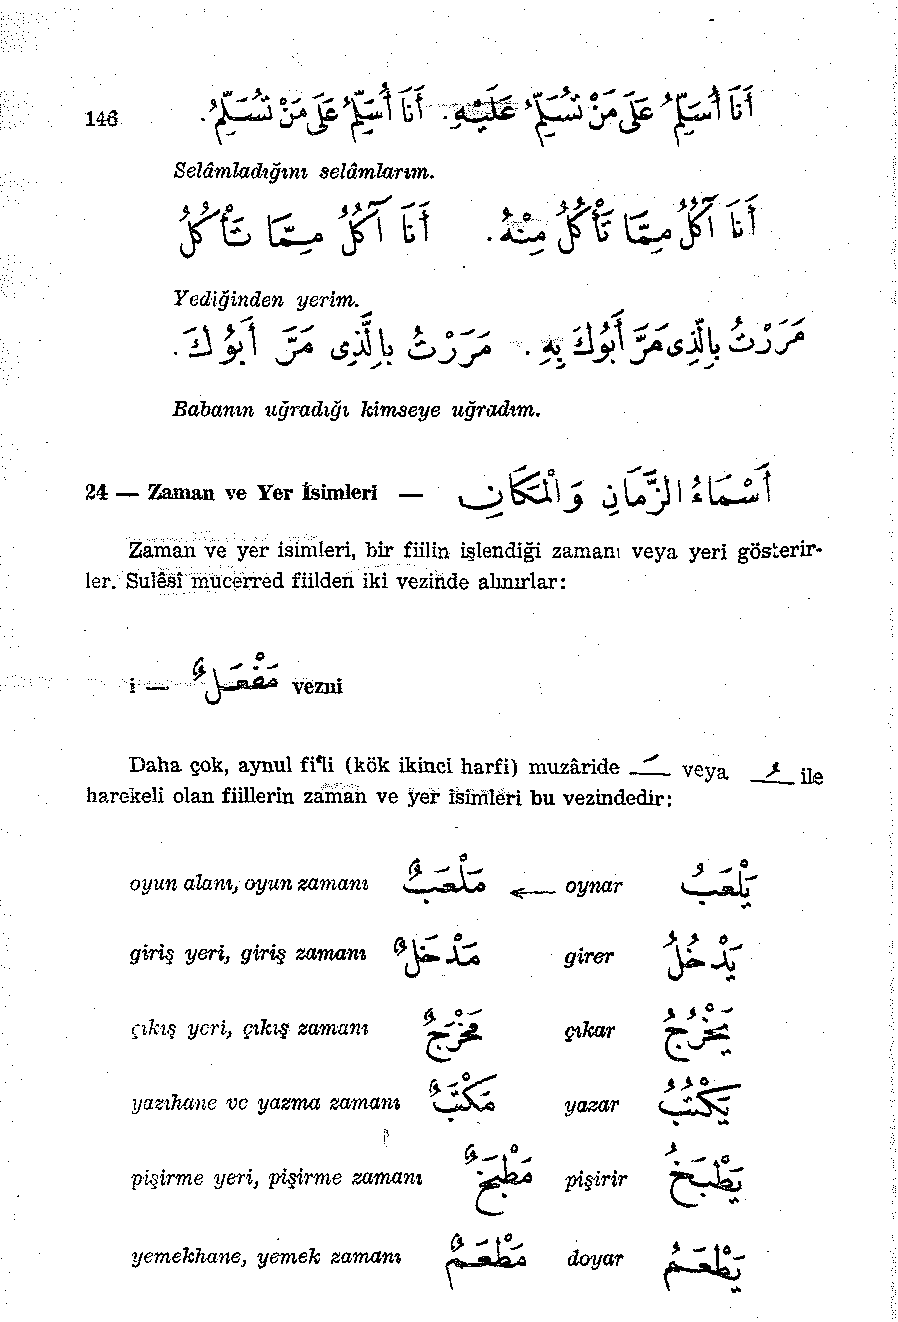 146
أَنَا أُسَلِّمُ عَلَى مَنْ تُسَلِّمُ عَلَيْهِ. أَنَا أُسَلِّمُ عَلَى مَنْ تُسَلِّمُ.
Selâmladığını selâmlarım.
أَنَا آكُلُ مِمَّا تَأْكُلُ مِنْهُ. أَنَا آكُلُ مِمَّا تَأْكُلُ
Yediğinden yerim.
مَرَرْتُ بِالَّذِى مَرَّ أَبُوكَ بِهِ. مَرَرْتُ بِالَّذِى مَرَّ أَبُوكَ.
Babanın uğradığı kimseye uğradım.
24 — Zaman ve Yer İsimleri — أَسْمَاءُ الزَّمَانِ وَالْمَكَانِ
Zaman ve yer isimleri, bir fiilin işlendiği zamanı veya yeri gösterir-
ler. Sulêsî mücerred fiilden iki vezinde alınırlar:
i — مَفْعَلٌ vezni
Daha çok, aynul fi'li (kök ikinci harfi) muzâride ـَـ veya ـُـ ile
harekeli olan fiillerin zaman ve yer isimleri bu vezindedir:
oyun alanı, oyun zamanı مَلْعَبٌ ← oynar يَلْعَبُ
giriş yeri, giriş zamanı مَدْخَلٌ girer يَدْخُلُ
çıkış yeri, çıkış zamanı مَخْرَجٌ çıkar يَخْرُجُ
yazıhane ve yazma zamanı مَكْتَبٌ yazar يَكْتُبُ
pişirme yeri, pişirme zamanı مَطْبَخٌ pişirir يَطْبَخُ
yemekhane, yemek zamanı مَطْعَمٌ doyar يَطْعَمُ